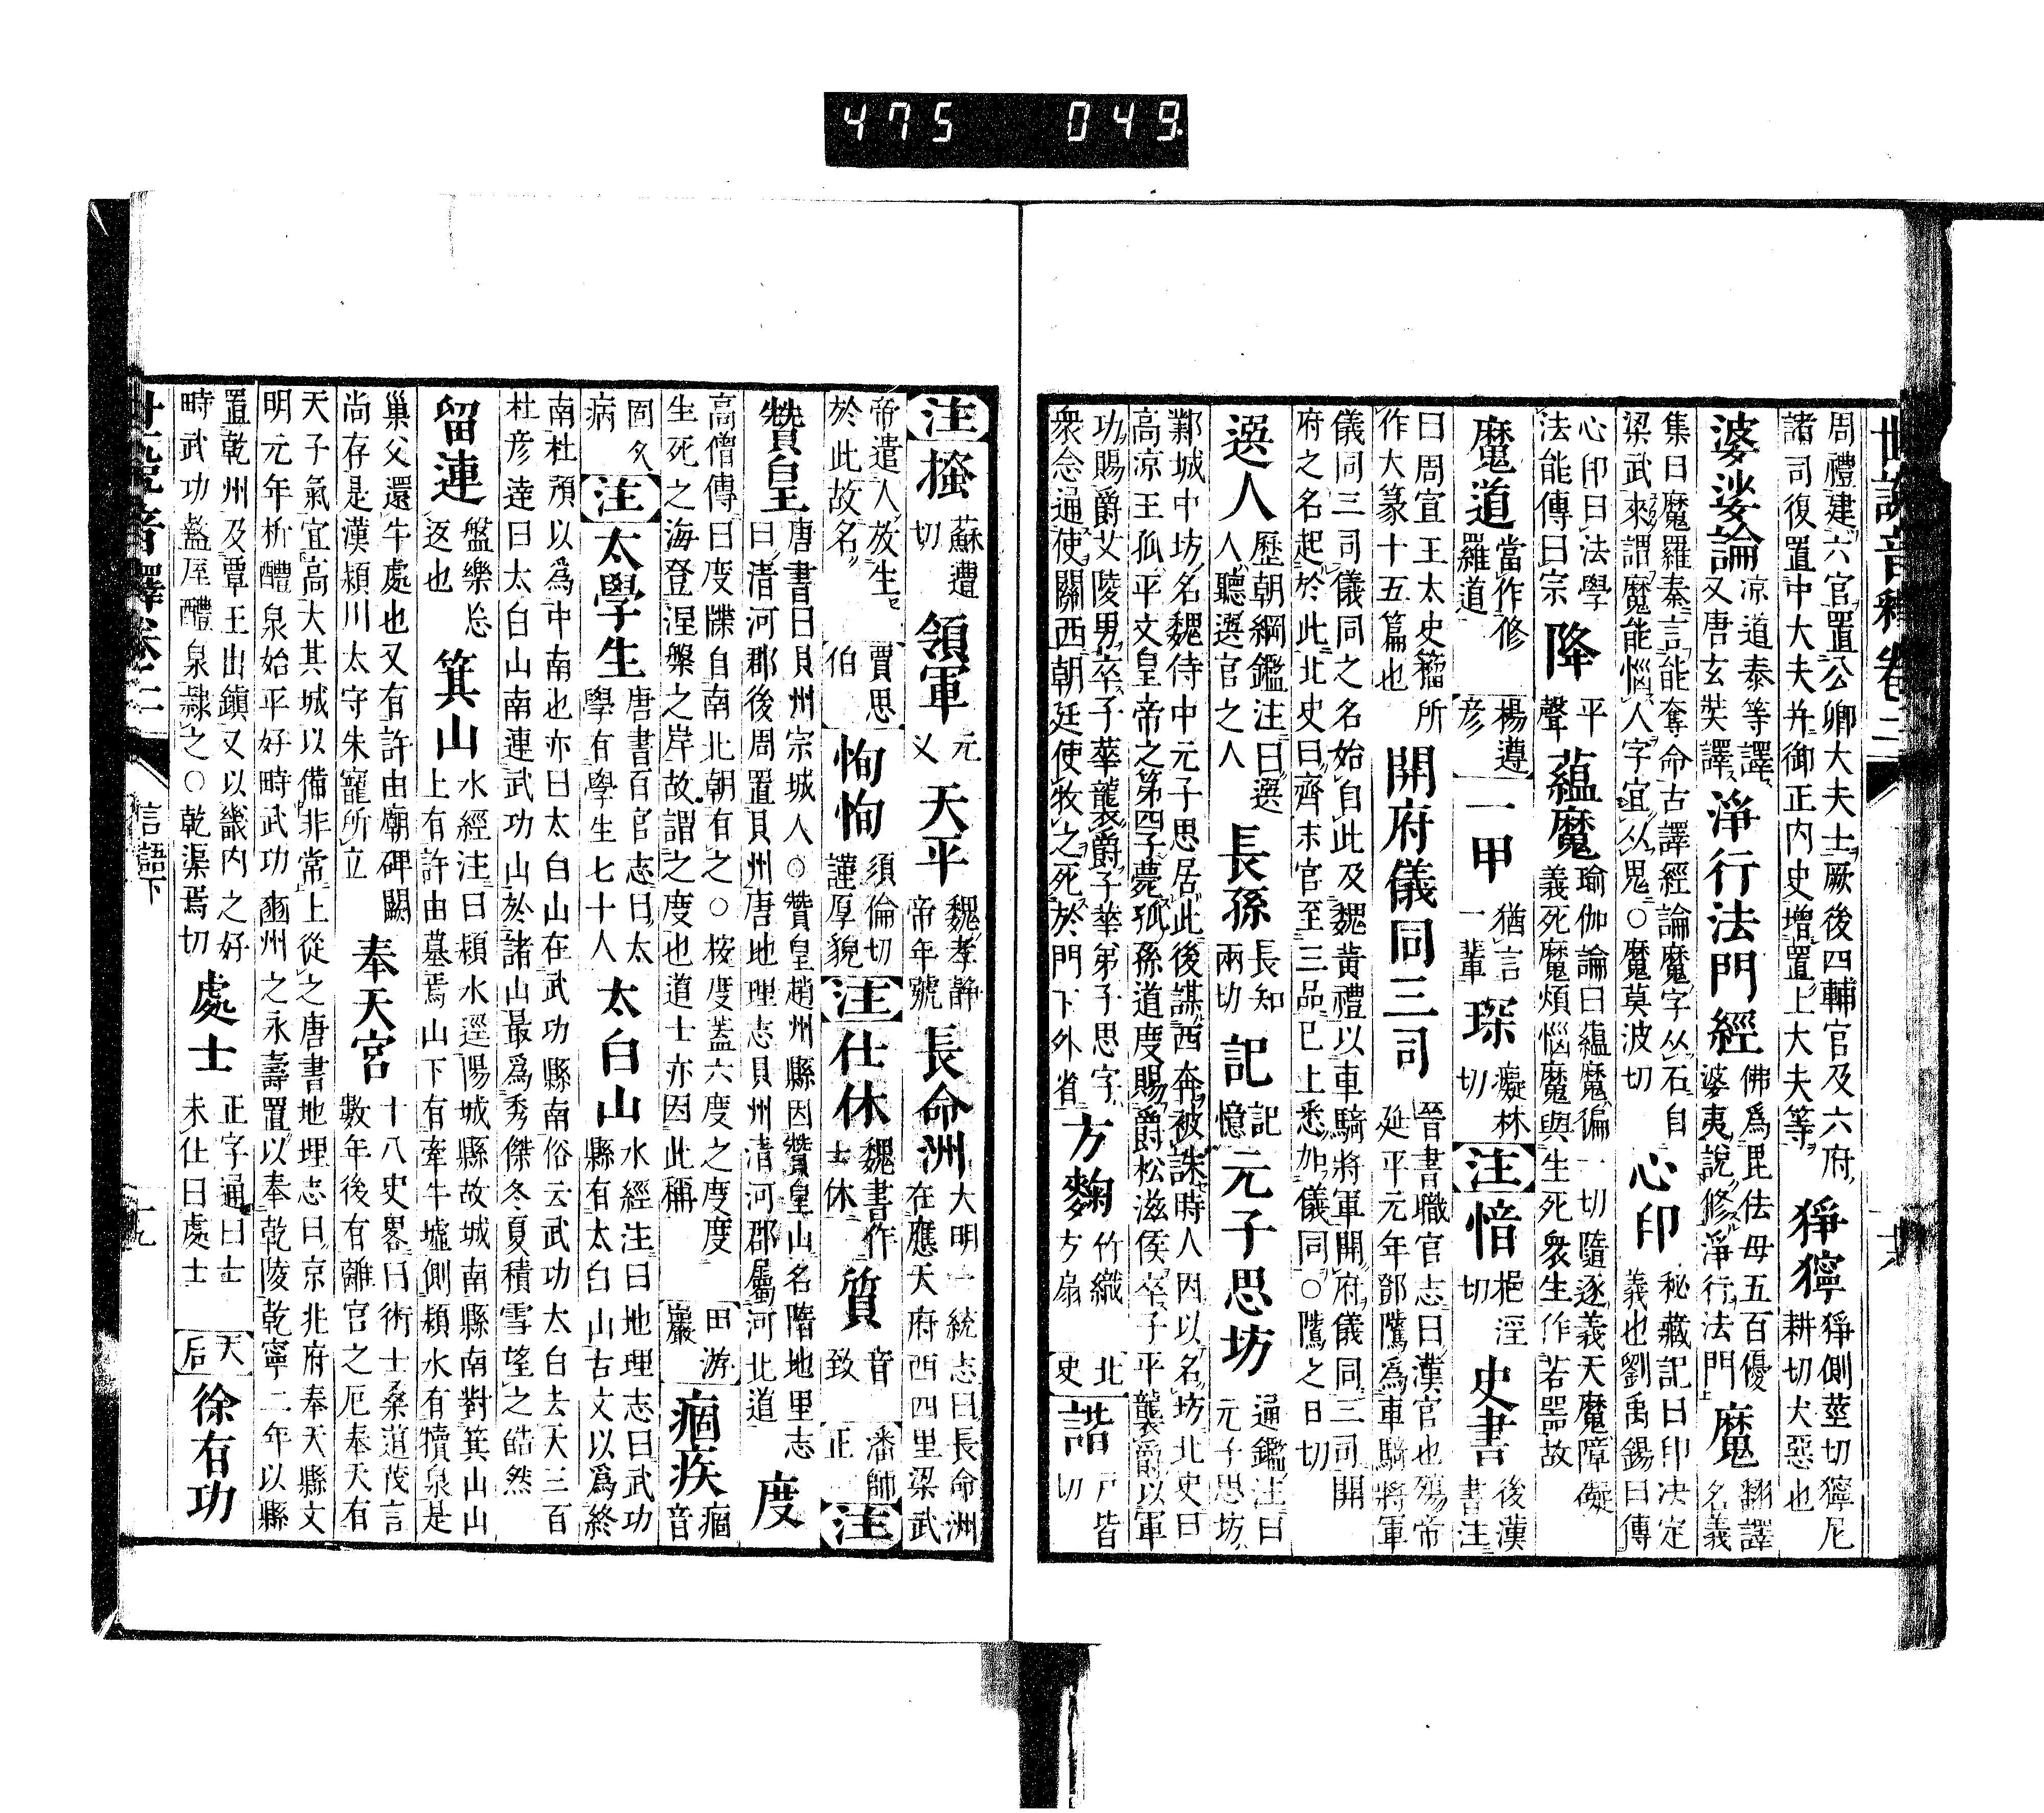 世説音釋卷二
周禮建六官置公卿大夫士厥後四輔官及六府
諸司復置中大夫并御正内史増置上大夫等 猙獰 猙側莖切獰尼耕切犬惡也
婆娑論 凉道泰等譯又唐玄奘譯 淨行法門經 佛爲毘佉母五百優婆夷説修淨行法門 魔 翻譯名義
集曰魔羅秦言能奪命古譯經論魔字从石自
梁武來謂魔能惱人字宜从鬼○魔莫波切 心印 秘藏記曰印決定義也劉禹錫曰傳
心印曰法學法能傳曰宗 降 平聲 蘊魔 瑜伽論曰蘊魔徧一切隨逐義天魔障礙義死魔煩惱魔與生死衆生作若噐故
魔道 當作修羅道 楊遵彦 一甲 猶言一輩 琛 癡林切 注 愔 挹淫切 史書 後漢書注
曰周宣王太史籀所作大篆十五篇也 開府儀同三司 晉書職官志曰漢官也殤帝延平元年鄧隲爲車騎將軍
儀同三司儀同之名始自此及魏黄禮以車騎將軍開府儀同三司開
府之名起於此北史曰齊末官至三品已上悉加儀同○隲之日切
選人 歴朝綱鑑注曰選人聽選官之人 長孫 長知兩切 記 記憶 元子思坊 通鑑注曰元子思坊
鄴城中坊名魏侍中元子思居此後謀西奔被誅時人因以名坊北史曰
高凉王孤平文皇帝之第四子薨孤孫道度賜爵松滋侯卒子平襲爵以軍
功賜爵艾陵男卒子華襲爵子華弟子思字
衆念逼使關西朝廷使牧之死於門下外省 方麴 竹織方扇 北史 諧 戸皆切
注 搔 蘇遭切 領軍 元乂 天平 魏孝靜帝年號 長命洲 大明一統志曰長命洲在應天府西四里梁武
帝遣人放生於此故名 賈思伯 恂恂 須倫切謹厚貌 注 仕休 魏書作士休 質 音致 潘師正 注
贊皇 唐書曰貝州宗城人○贊皇趙州縣因贊皇山名隋地里志曰清河郡後周置貝州唐地理志貝州清河郡屬河北道 度
高僧傳曰度牒自南北朝有之○按度蓋六度之度度
生死之海登涅槃之岸故謂之度也道士亦因此稱 田游巖 痼疾 痼音
固久病 注 太學生 唐書百官志曰太學有學生七十人 太白山 水經注曰地理志曰武功縣有太白山古文以爲終
南杜預以爲中南也亦曰太白山在武功縣南俗云武功太白去天三百
杜彦達曰太白山南連武功山於諸山最爲秀傑冬夏積雪望之皓然
留連 盤樂忘返也 箕山 水經注曰頴水逕陽城縣故城南縣南對箕山山上有許由墓焉山下有牽牛墟側頴水有犢泉是
巢父還牛處也又有許由廟碑闕
尚存是漢頴川太守朱寵所立 奉天宮 十八史畧曰術士桑道茂言數年後有離宮之厄奉天有
天子氣宜高大其城以備非常上從之唐書地理志曰京兆府奉天縣文
明元年析醴泉始平好畤武功豳州之永壽置以奉乾陵乾寧二年以縣
置乾州及覃王出鎮又以畿内之好
畤武功盩厔醴泉隷之○乾渠焉切 處士 正字通曰士未仕曰處士 天后 徐有功
信語下
十九
475 049